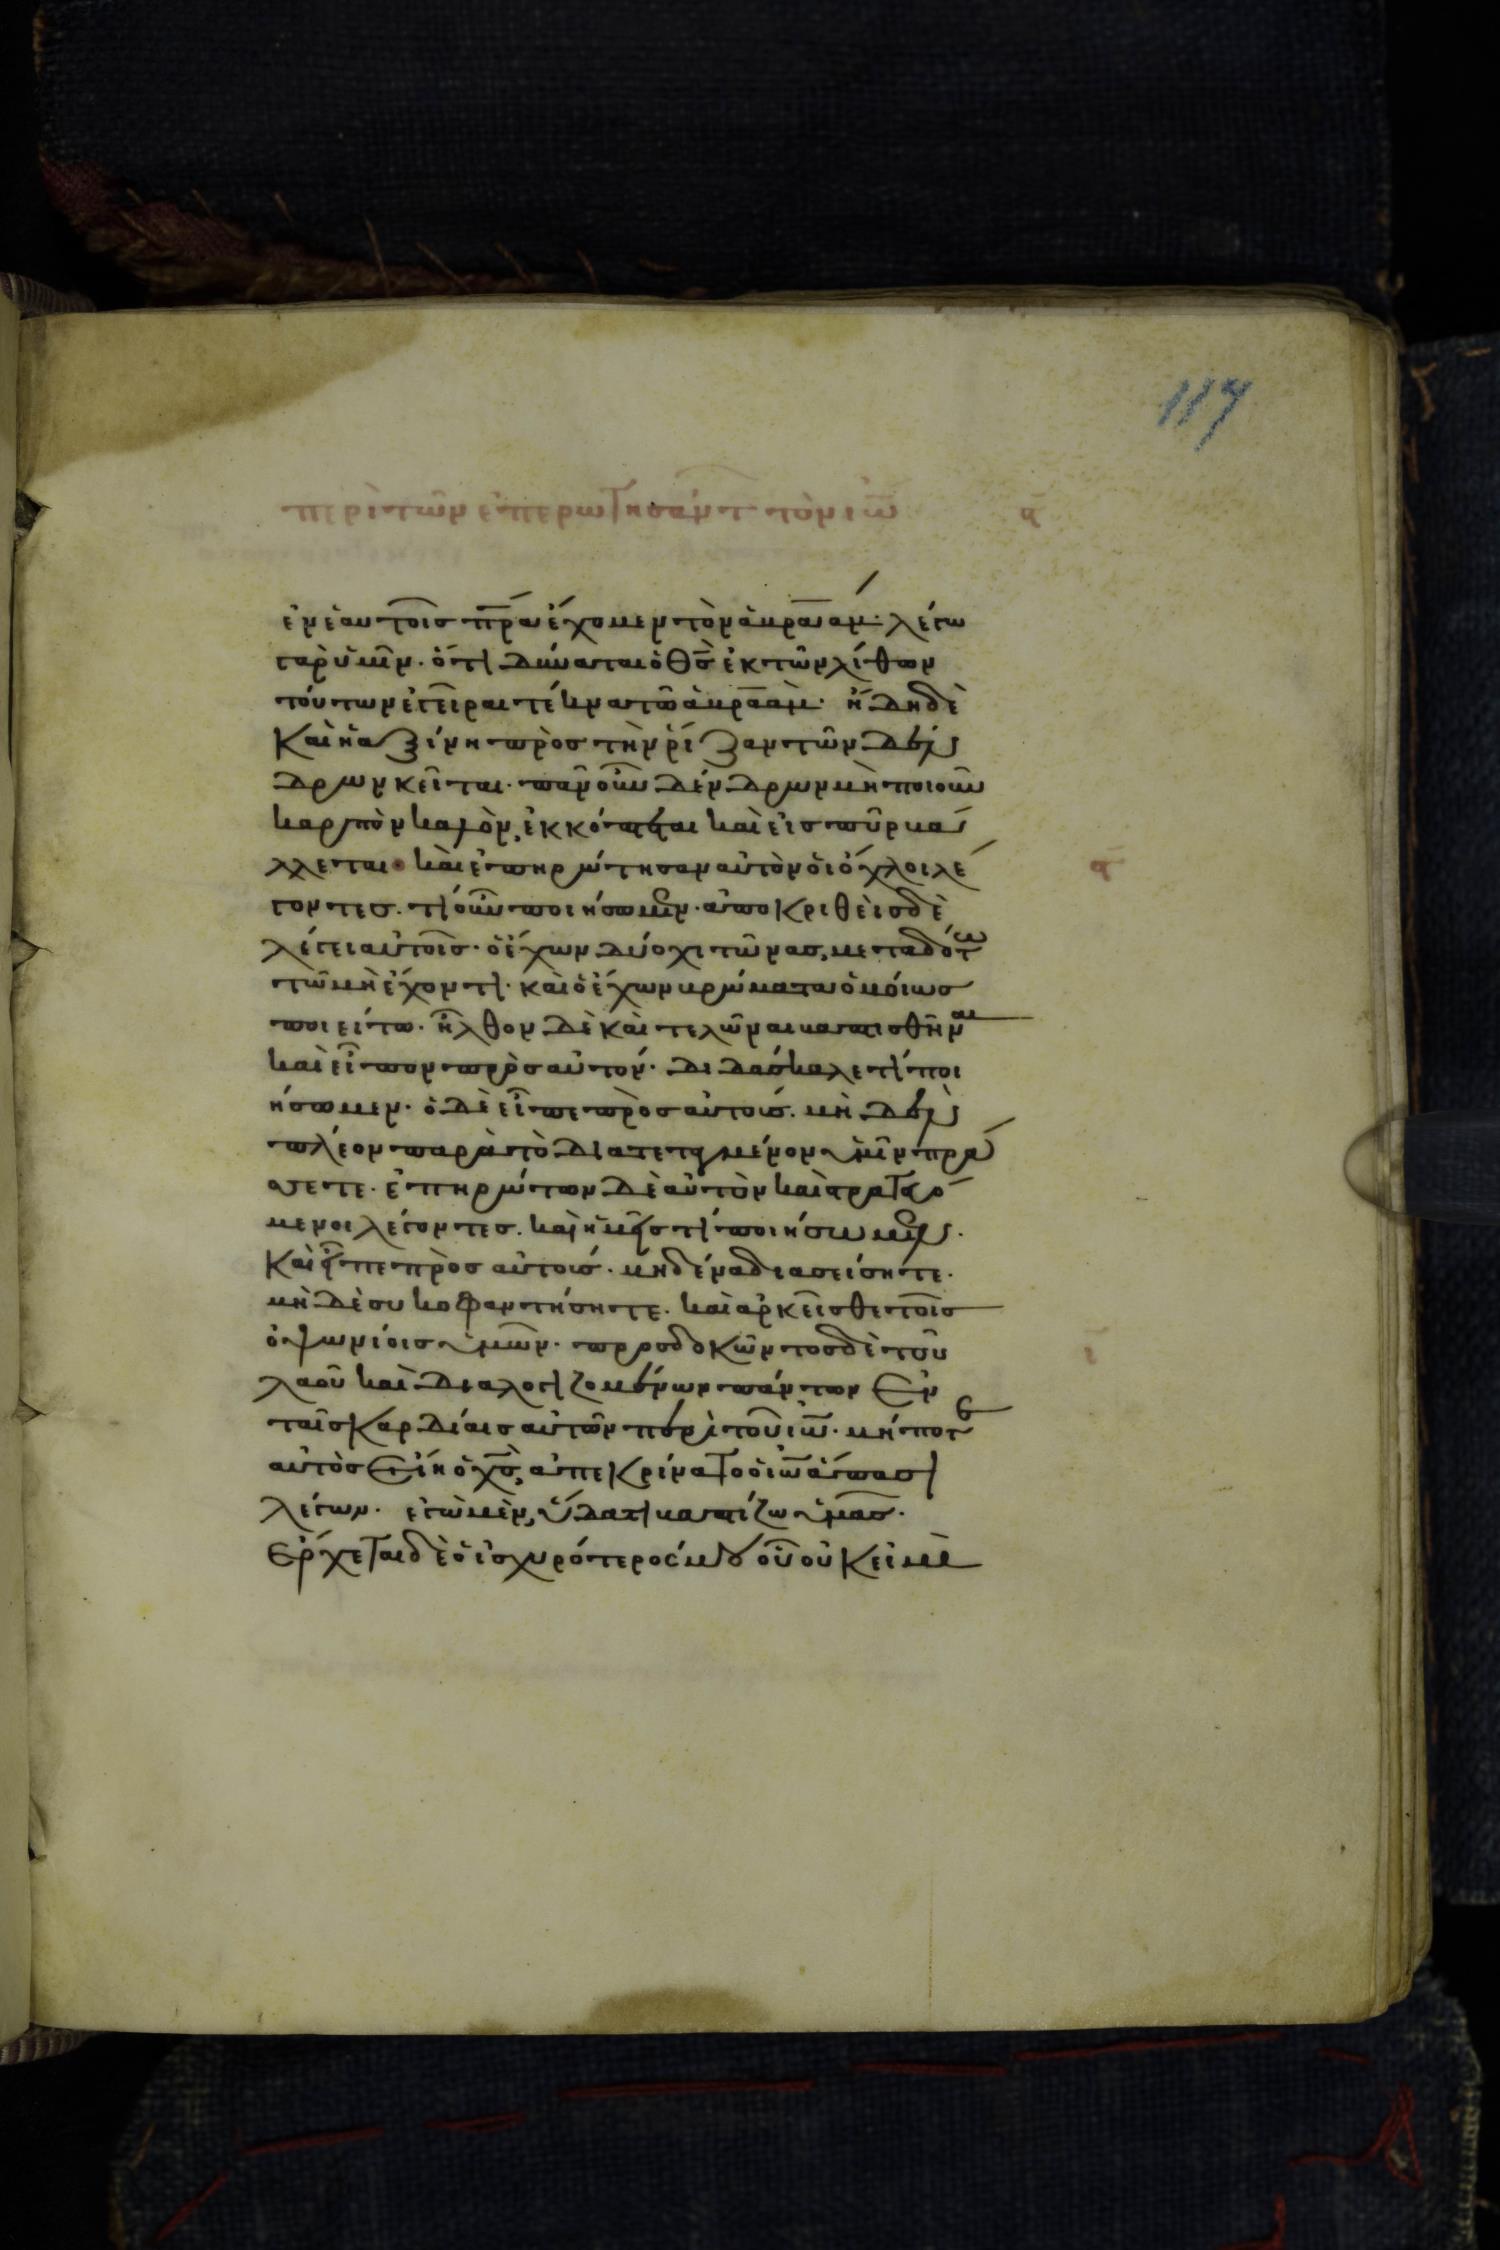 117
περὶ τῶν ἐπερωτησάντ τὸν ἰω̅ α̅
ἐν ἑαυτοῖς πρ̅α ἔχομεν τὸν ἀβραάμ· λέγω
γὰρ ὑμῖν· ὅτι δύναται ὁ θ̅ς ἐκ τῶν λίθων
τούτων ἐγεῖραι τέκνα τῶ ἀβραάμ· ἤδη δὲ
καὶ ἡ ἀξίνη πρὸς τὴν ῥίζαν τῶν δέν
δρων κεῖται· πᾶν οὖν δένδρων μὴ ποιοῦν
καρπὸν καλὸν, ἐκκόπτεται καὶ εἰς πῦρ βά
λλεται· καὶ ἐπηρώτησαν αὐτὸν οἱ ὄχλοι λέ
α̅
γοντες. τί οὖν ποιήσωμεν· ἀποκριθεὶς δὲ
λέγει αὐτοῖς· ὁ ἔχων δύο χιτῶνας, μεταδότω
τῶ μὴ ἔχοντι· καὶ ὁ ἔχων βρώματα ὁμοίως
ποιείτω· ἦλθον δὲ καὶ τελῶναι βαπτισθῆναι
καὶ εἶπον πρὸς αὐτόν· διδάσκαλε τί ποι
ήσωμεν· ὁ δὲ εἶπε πρὸς αὐτούς. μὴ δὲν
πλέον παρὰ τὸ διατεταγμένον ὑμῖν πρά
σσετε· ἐπηρώτων δὲ αὐτὸν καὶ στρατευό
μενοι λέγοντες. καὶ ἡμεῖς τί ποιήσωμεν·
καὶ εἶπε πρὸς αὐτούς· μηδένα διασείσητε·
μὴ δὲ συκοφαντήσητε. καὶ ἀρκεῖσθε τοῖς
ὀψωνίοις ὑμῶν· προσδοκῶντος δὲ τοῦ
ι̅
λαοῦ καὶ διαλογιζομένων πάντων ἐν
ταῖς καρδίαις αὐτῶν περὶ τοῦ ἰω̅· μήποτε
αὐτὸς εἴη ὁ χ̅ς, ἀπεκρίνατο ὁ ἰω̅ ἅπασι
λέγων· ἐγὼ μὲν, ὕδατι βαπτίζω ὑμᾶς·
ἔρχεται δὲ ὁ ἰσχυρότερός μου οὗ οὐκ εἰμὶ